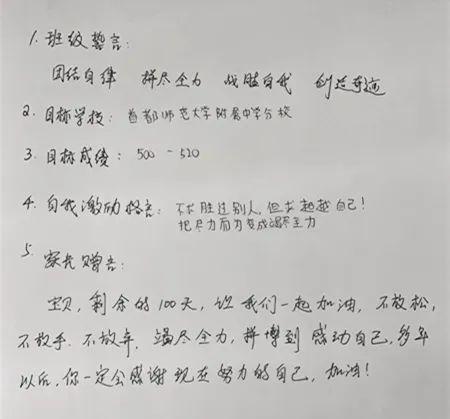 1. 班级誓言:
团结自律 拼尽全力 战胜自我 创造奇迹
2. 目标学校: 首都师范大学附属中学分校
3. 目标成绩: 500-520
4. 自我激励格言: 不求胜过别人,但求超越自己!
把尽力而为变成竭尽全力
5. 家长赠言:
宝贝,剩余的100天,让我们一起加油,不放松,
不放手.不放弃,竭尽全力,拼搏到感动自己,多年
以后,你一定会感谢现在努力的自己,加油!